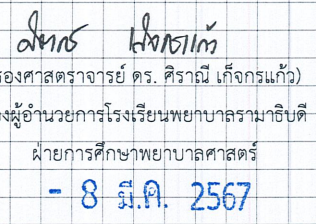 รองศาสตราจารย์ ดร. ศิราณี เก็จกรแก้ว)
ผู้อำนวยการโรงเรียนพยาบาลรามาธิบดี
ฝ่ายการศึกษาพยาบาลศาสตร์
- 8 มี.ค. 2567